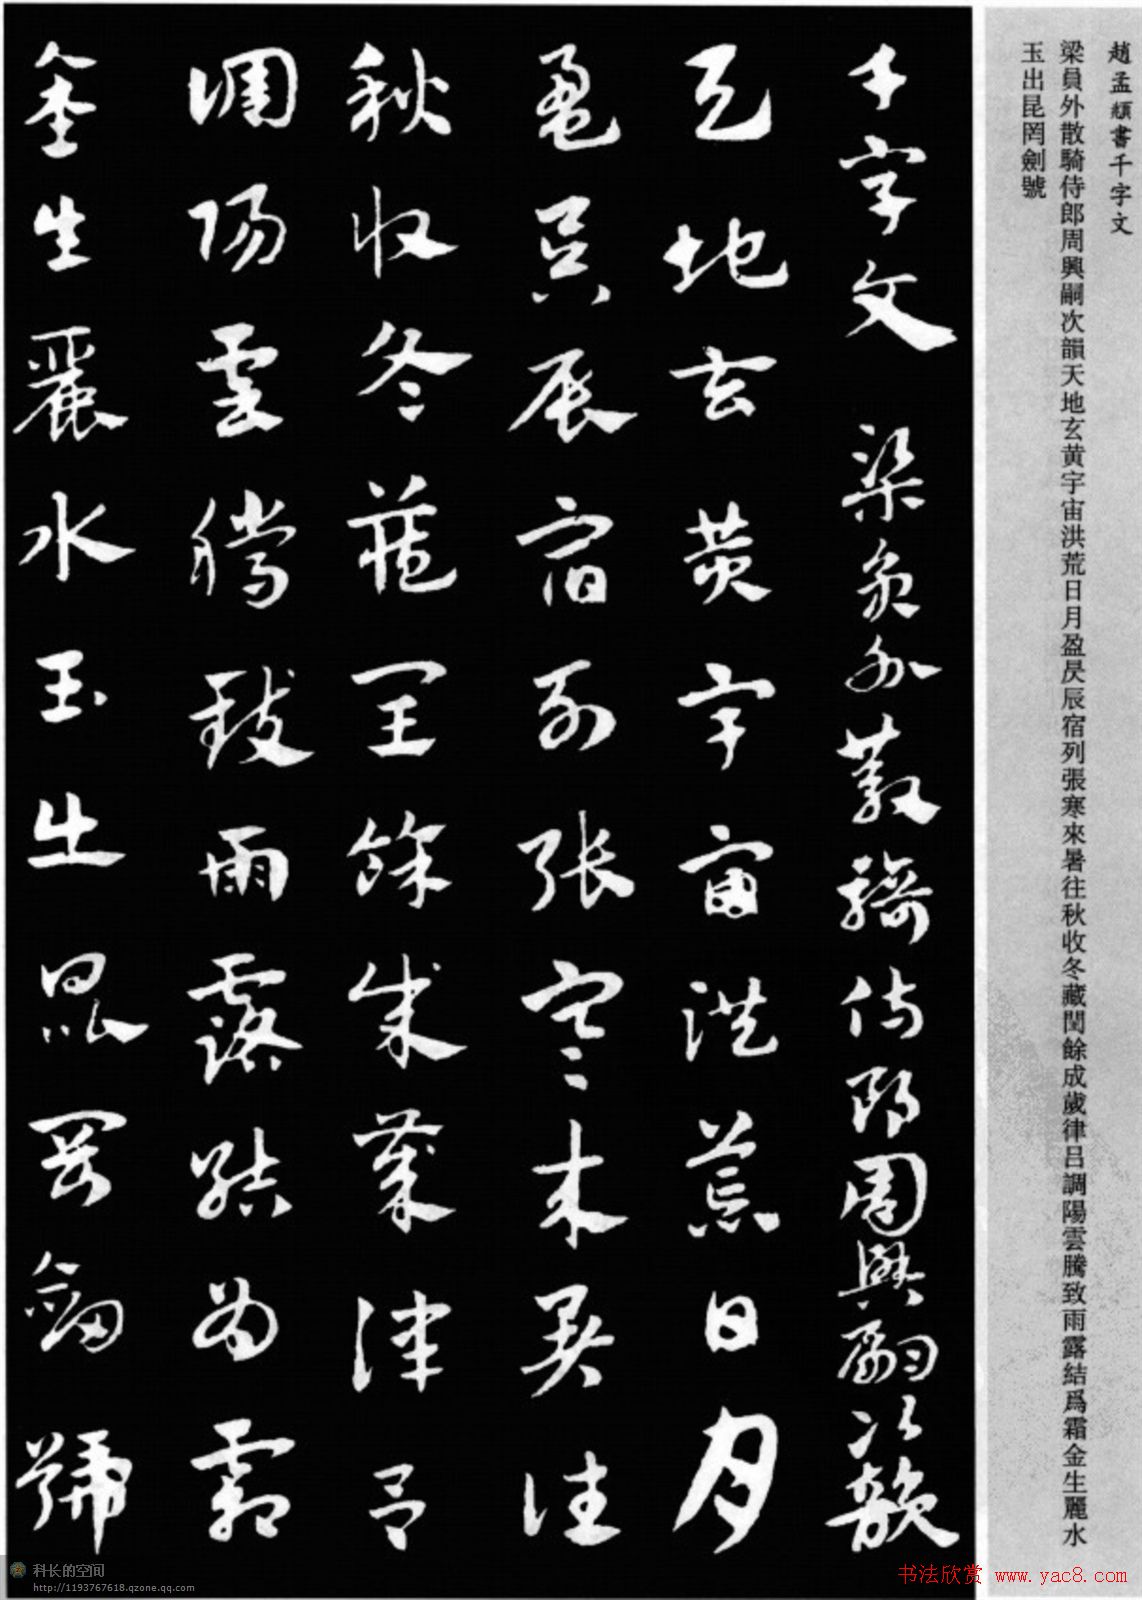 趙孟頫書千字文
梁員外散騎侍郎周興嗣次韻天地玄黄宇宙洪荒日月盈昃辰宿列張寒來暑往秋收冬藏閏餘成歲律吕調陽雲騰致雨露結爲霜金生麗水
玉出昆岡劍號
千字文 梁員外散騎侍郎周興嗣次韻
天地玄黄宇宙洪荒日月
盈昃辰宿列張寒來暑往
秋收冬藏閏餘成歲律吕
調陽雲騰致雨露結為霜
金生麗水玉出崑岡劍號
科长的空间
http://1193767618.qzone.qq.com
书法欣赏 www.yac8.com